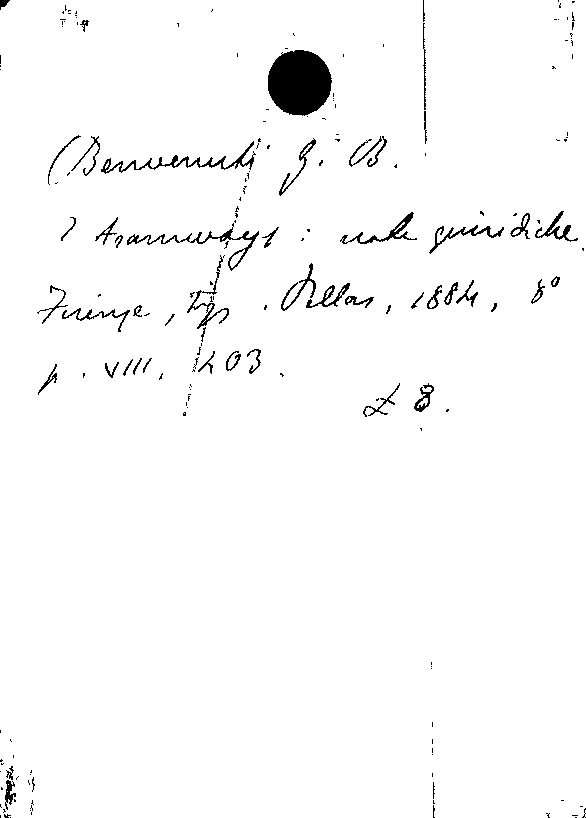 Benvenuti G. B.
I tramways : note giuridiche.
Firenze, tip. Pellas, 1884, 8°
p. VIII, 203.
£ 8.